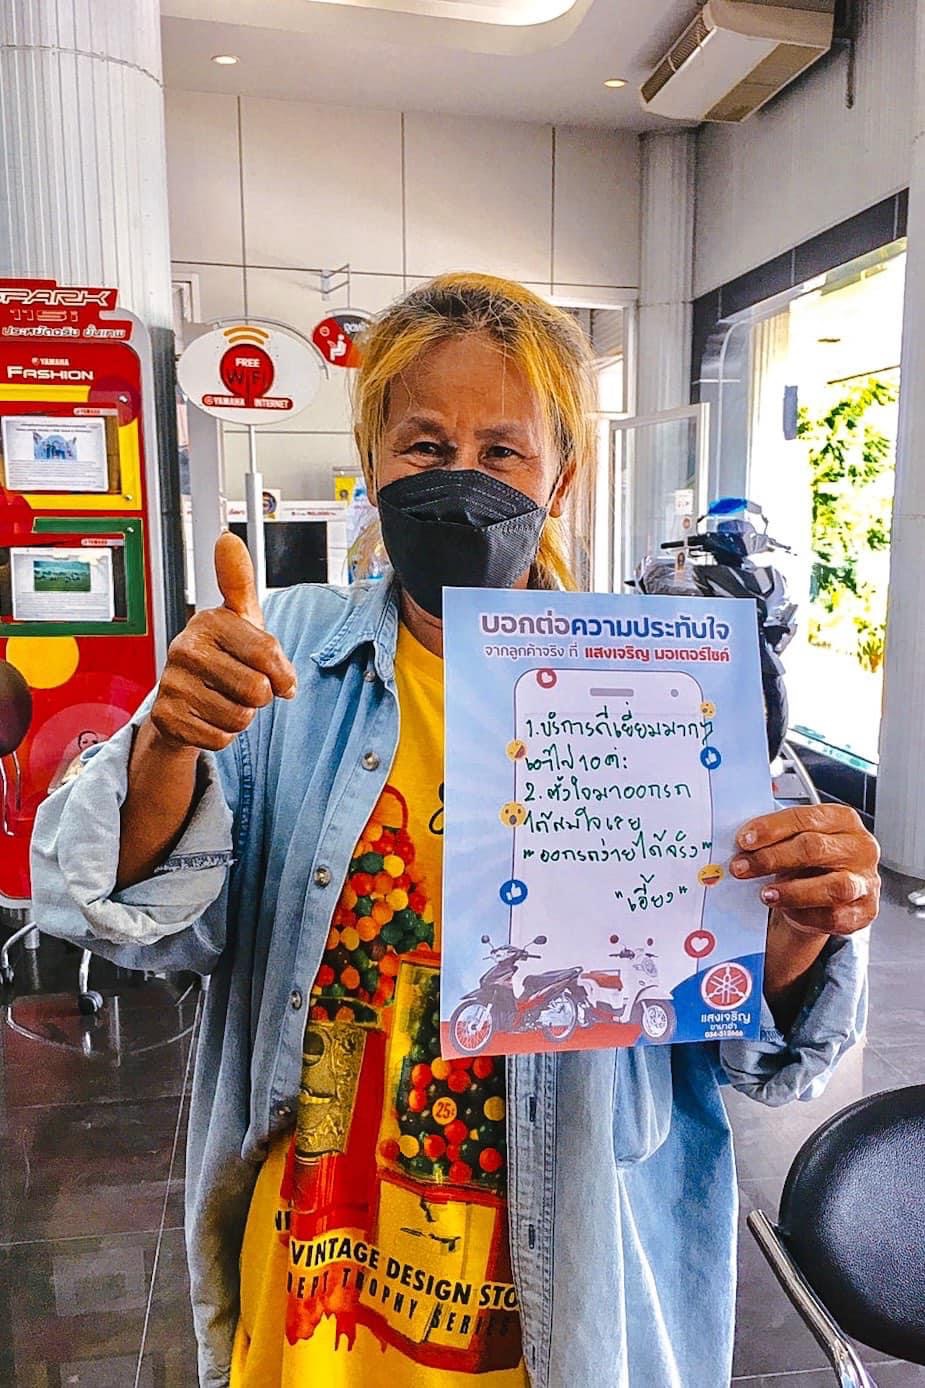 SPARK
115i
ประหยัดจริง ขั้นเทพ
YAMAHA
FASHION
FREE
WiFi
YAMAHA INTERNET
บอกต่อความประทับใจ
จากลูกค้าจริง ที่ แสงเจริญ มอเตอร์ไซค์
1. บริการดีเยี่ยมมากๆ
เอาไป 10 ค่ะ
2. ตั้งใจมาออกรถ
ได้สมใจเลย
"ออกรถง่ายได้จริง"
"เอี้ยง"
แสงเจริญ
ยามาฮ่า
034-512666
25¢
VINTAGE DESIGN STO
DEPT TROPHY SERIES